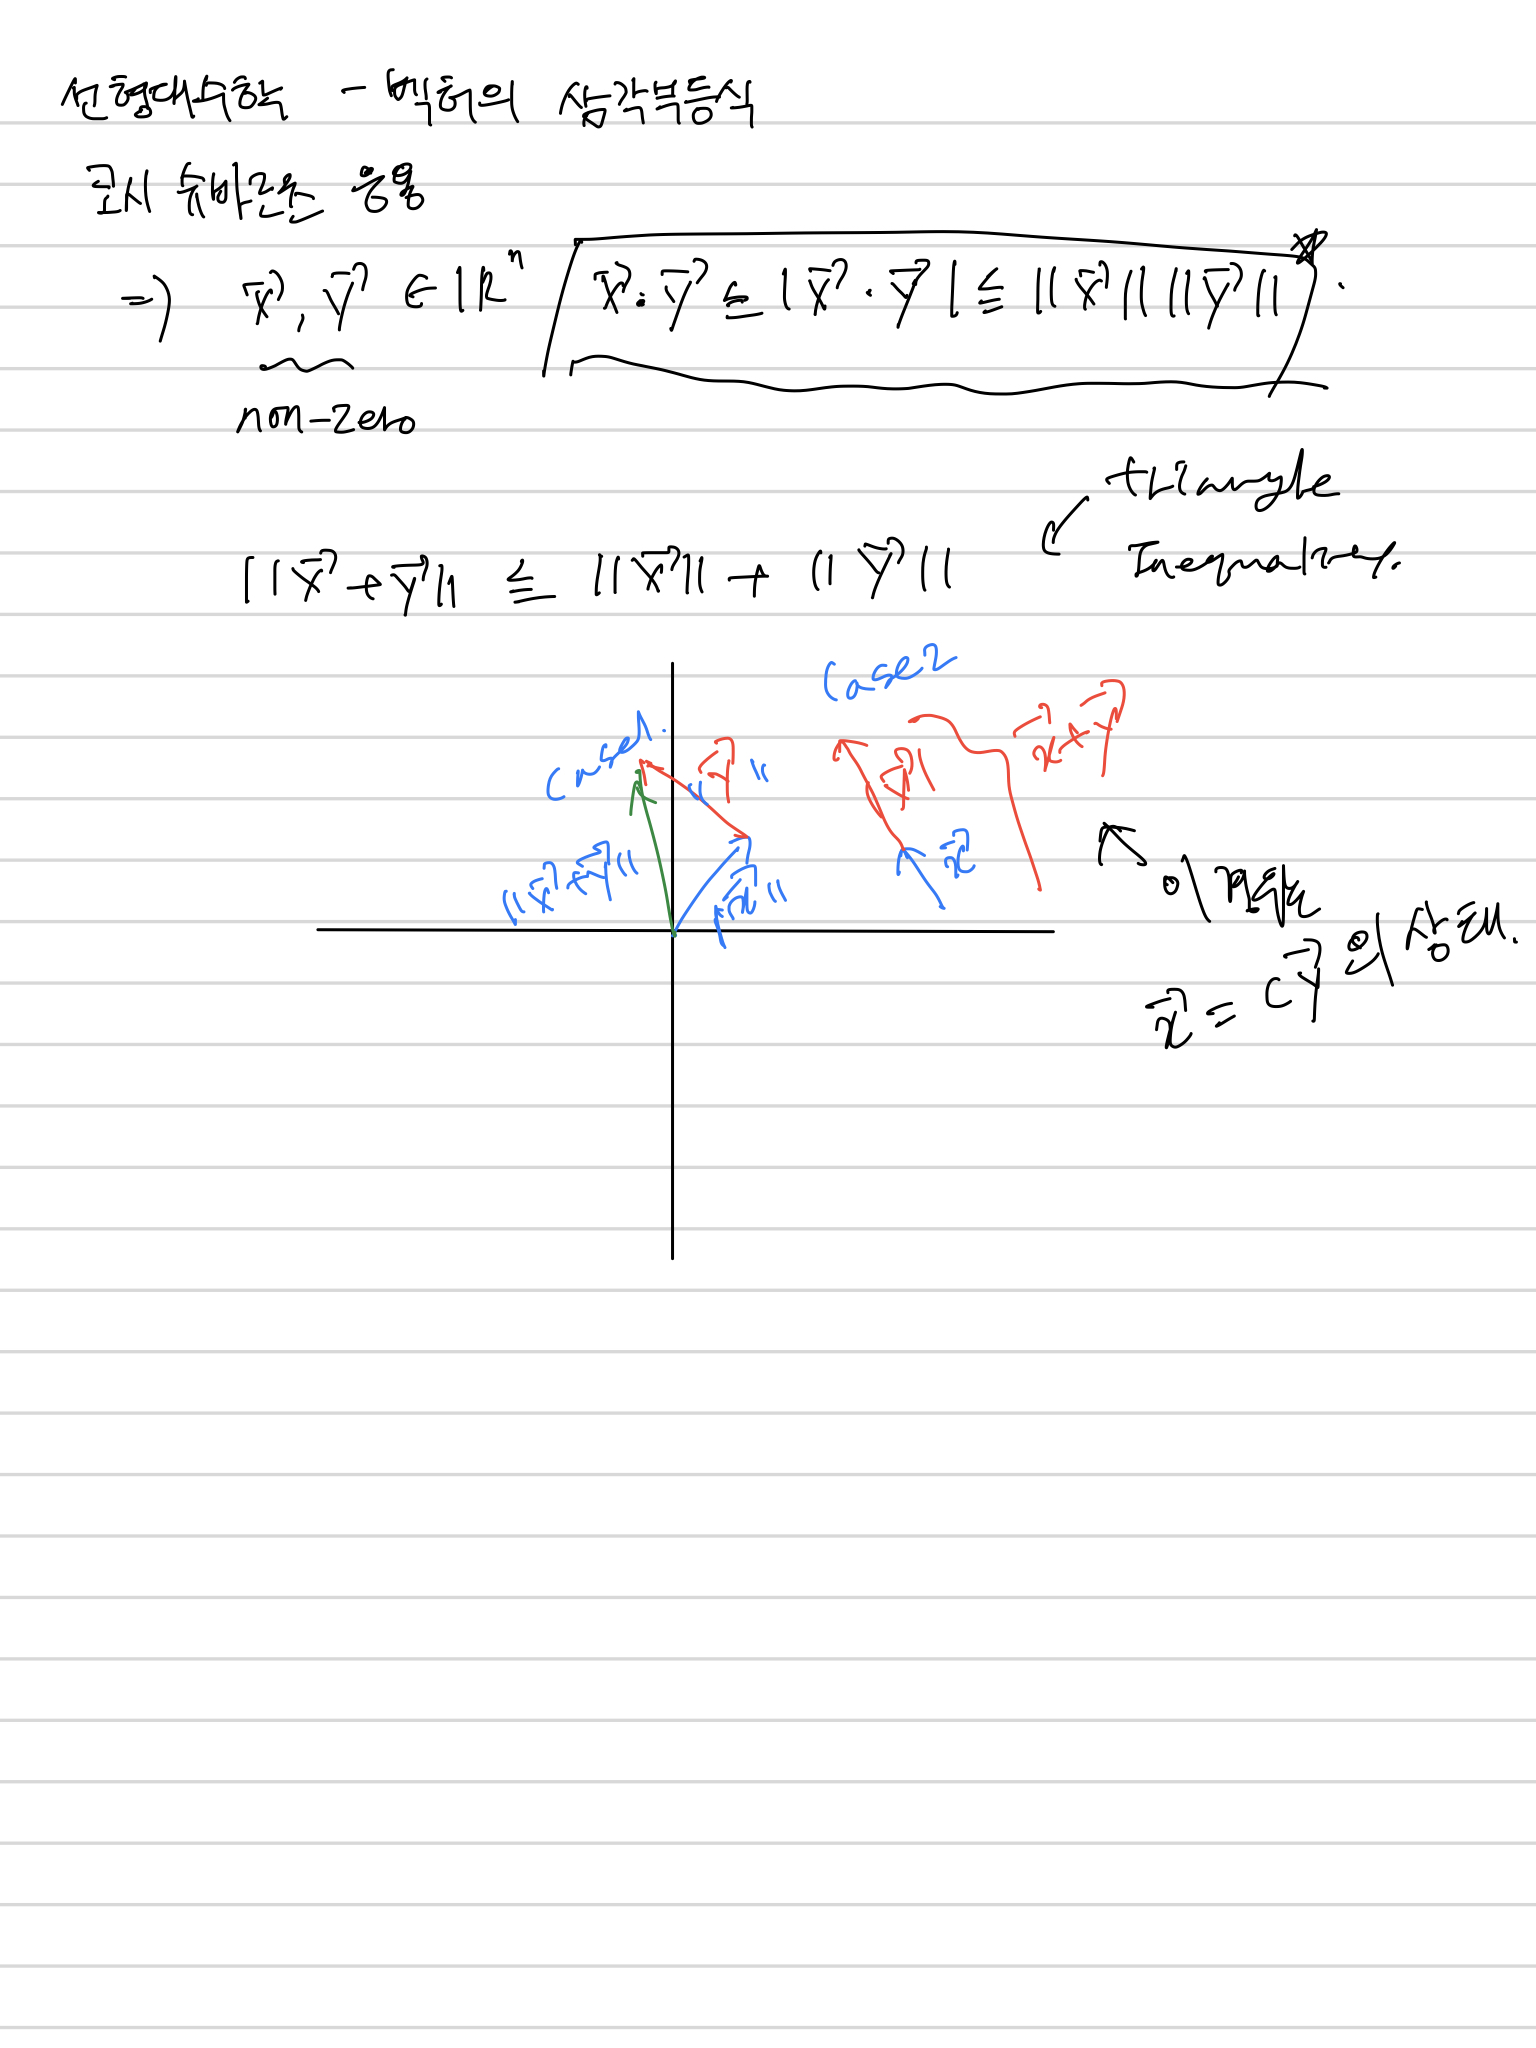 선형대수학 - 벡터의 삼각부등식
코시 슈바르츠 응용
⇒) x⃗, y⃗ ∈ ℝⁿ x⃗·y⃗ ≦ |x⃗·y⃗| ≦ ||x⃗|| ||y⃗||.
non-zero
triangle
Inequality.
||x⃗+y⃗|| ≦ ||x⃗|| + ||y⃗||
case1.
case2
||y⃗||
y⃗
x⃗+y⃗
||x⃗+y⃗||
||x⃗||
x⃗
이 경우는
x⃗ = cy⃗ 의 상태.